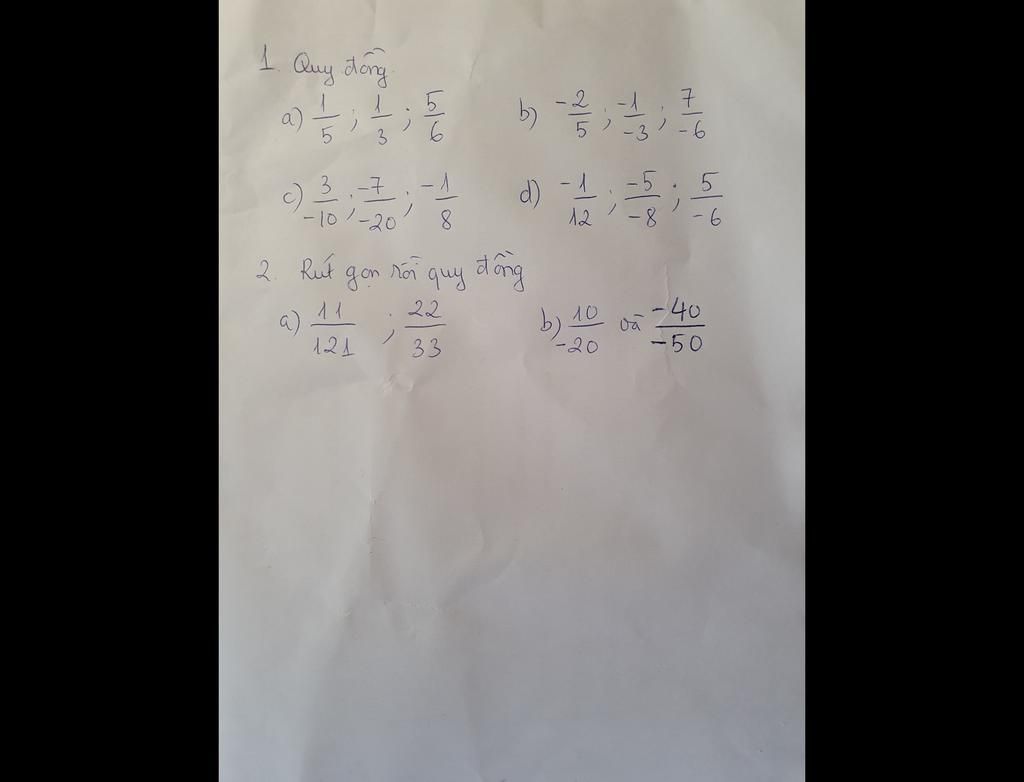 1. Quy đồng.
a) 1/5 ; 1/3 ; 5/6 b) -2/5 ; -1/-3 ; 7/-6
c) 3/-10 ; -7/-20 ; -1/8 d) -1/12 ; -5/-8 ; 5/-6
2. Rút gọn rồi quy đồng
a) 11/121 ; 22/33 b) 10/-20 và -40/-50